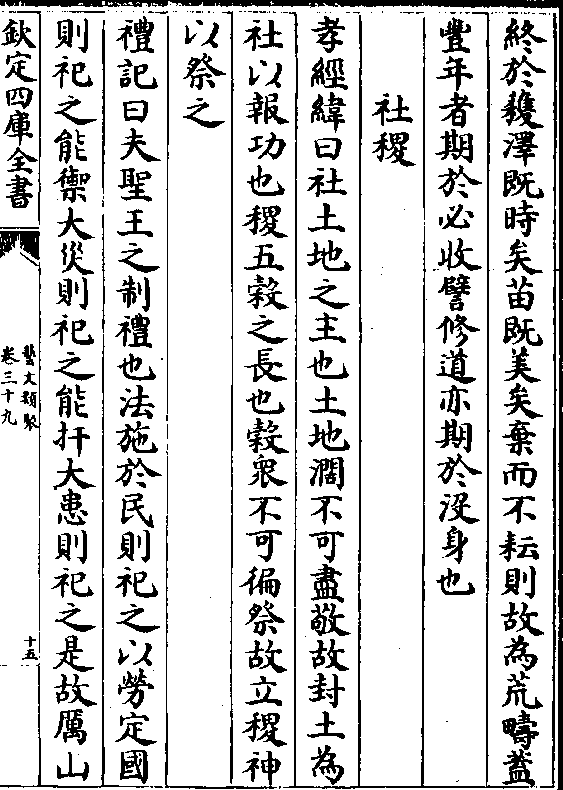 終於穫澤既時矣苗既美矣棄而不耘則故為荒疇蓋
豐年者期於必收譬修道亦期於没身也
社稷
孝經緯曰社土地之主也土地濶不可盡敬故封土為
社以報功也稷五穀之長也穀衆不可徧祭故立稷神
以祭之
禮記曰夫聖王之制禮也法施於民則祀之以勞定國
則祀之能禦大災則祀之能扞大患則祀之是故厲山
欽定四庫全書
藝文類聚
卷三十九
十五